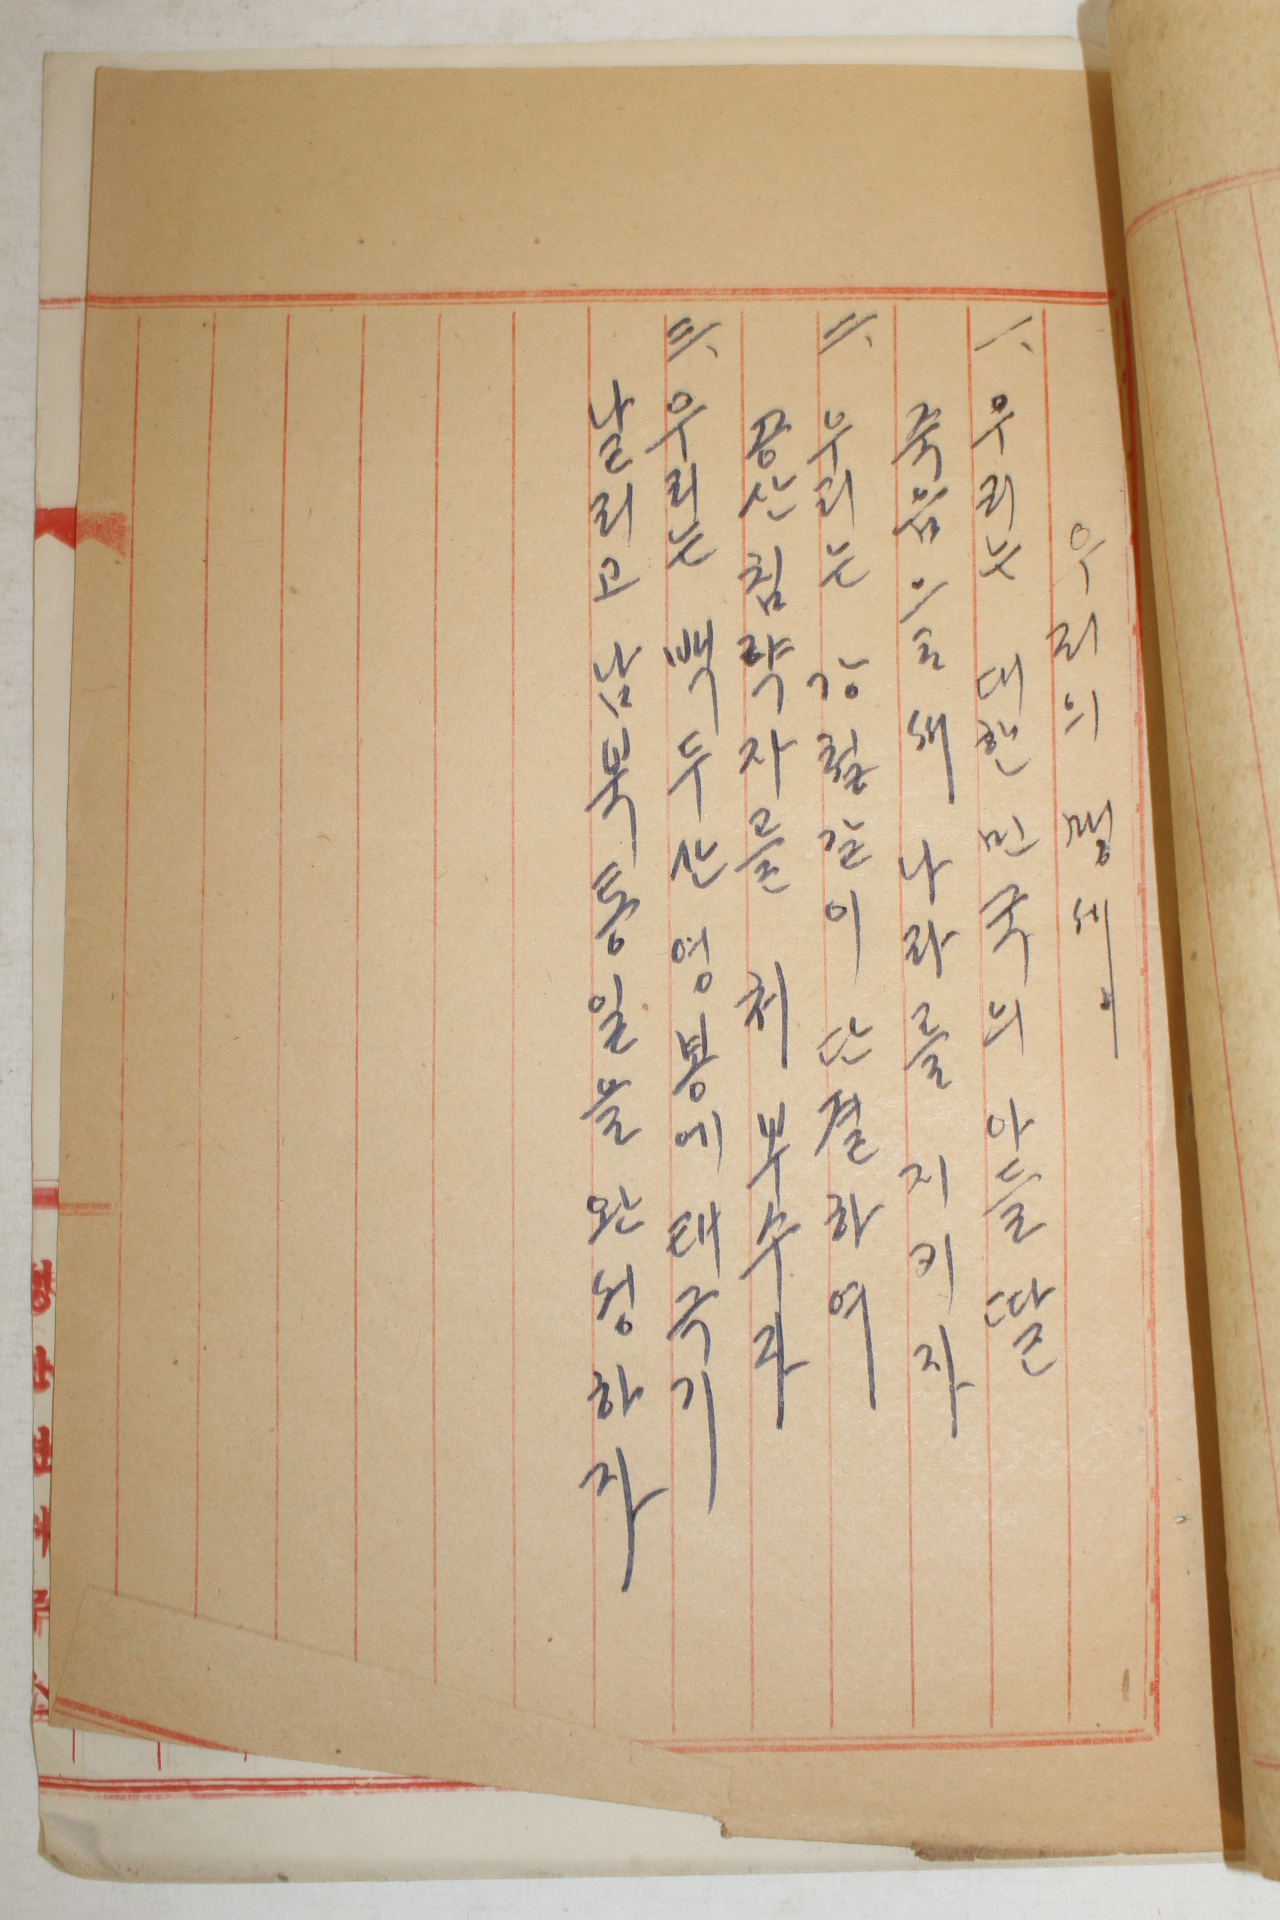 우리의 맹세
一、우리는 대한민국의 아들 딸
죽음으로써 나라를 지키자
二、우리는 강철같이 단결하여
공산침략자를 처부수자
三、우리는 백두산 영봉에 태극기
날리고 남북통일을 완성하자